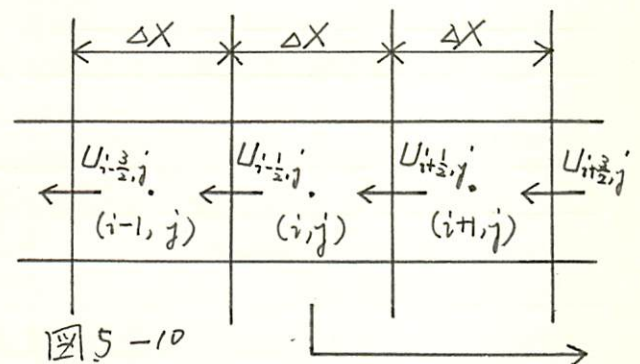 ΔX ΔX ΔX
U_{i-3/2,j} U_{i-1/2,j} U_{i+1/2,j} U_{i+3/2,j}
(i-1, j) (i,j) (i+1,j)
図5-10